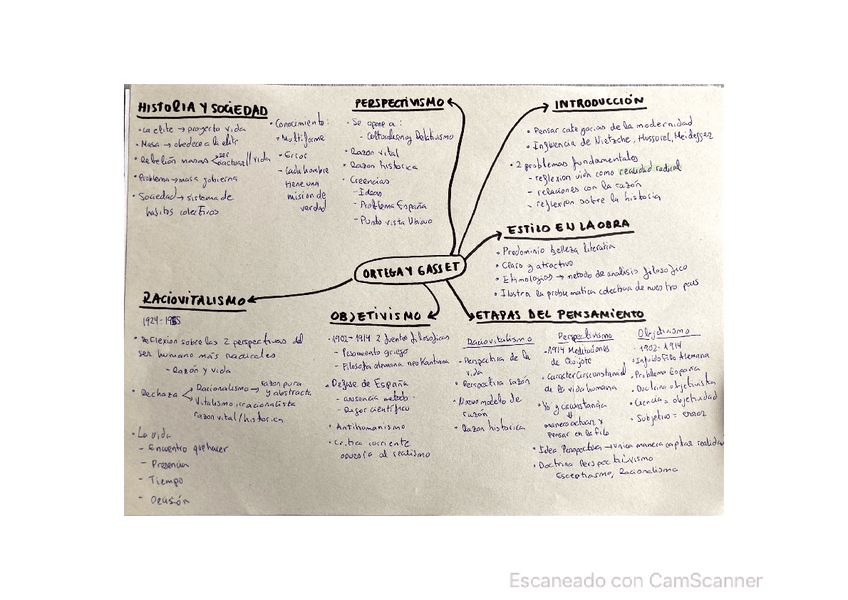 HISTORIA Y SOCIEDAD
• La elite → proyecto vida
• Masa → obedece a la elite
• Rebelión masas
• Problema → masa gobierna
• Sociedad → sistema de
hábitos colectivos
• Conocimiento:
- Multiforme
- Cada hombre
tiene una
mision de
verdad
PERSPECTIVISMO
• Se opone a:
• Razon vital
• Razon historica
• Creencias
- Ideas
- Problema España
- Punto vista
INTRODUCCIÓN
• Pensar categorias de la modernidad
• Influencia de Nietzche, Husserl, Heidegger
• 2 problemas fundamentales
- reflexion vida como realidad radical
- relaciones con la razón
- reflexion sobre la historia
ESTILO EN LA OBRA
• Predominio belleza literaria
• Claro y atractivo
• Etimologias → metodo de analisis filosofico
• Ilustra la problematica colectiva de nuestro pais
ORTEGA Y GASSET
RACIOVITALISMO
• Reflexion sobre las 2 perspectivas del
ser humano más radicales
- Razón y vida
• Rechaza
Racionalismo → razon pura
y abstracta
Vitalismo irracionalista
razon vital/historica
• La vida
- Encuentro quehacer
- Presencia
- Tiempo
- Ocasión
OBJETIVISMO
• 1902-1914 2 fuentes filosoficas
- Pensamiento griego
- Filosofia alemana neoKantiana
• Defase de España
- ausencia metodo
- Rigor cientifico
• Antihumanismo
• Critica corriente
opuesta al realismo
ETAPAS DEL PENSAMIENTO
Raciovitalismo
• Perspectiva de la
vida
• Perspectiva razón
• Nuevo modelo de
razón
• Razon historica
Perspectivismo
• 1914 Meditaciones
de Quijote
• Caracter circunstancial
de la vida humana
• Yo y circunstancia
manera actuar y
pensar en la filo
• Idea Perspectiva → unica manera captar realidad
• Doctrina Perspectivismo
Escepticismo, Racionalismo
Objetivismo
• 1902-1914
• Influido Filo Alemana
• Problema España
• Doctrina objetivista
• Ciencia = objetividad
• Subjetivo = error
Escaneado con CamScanner